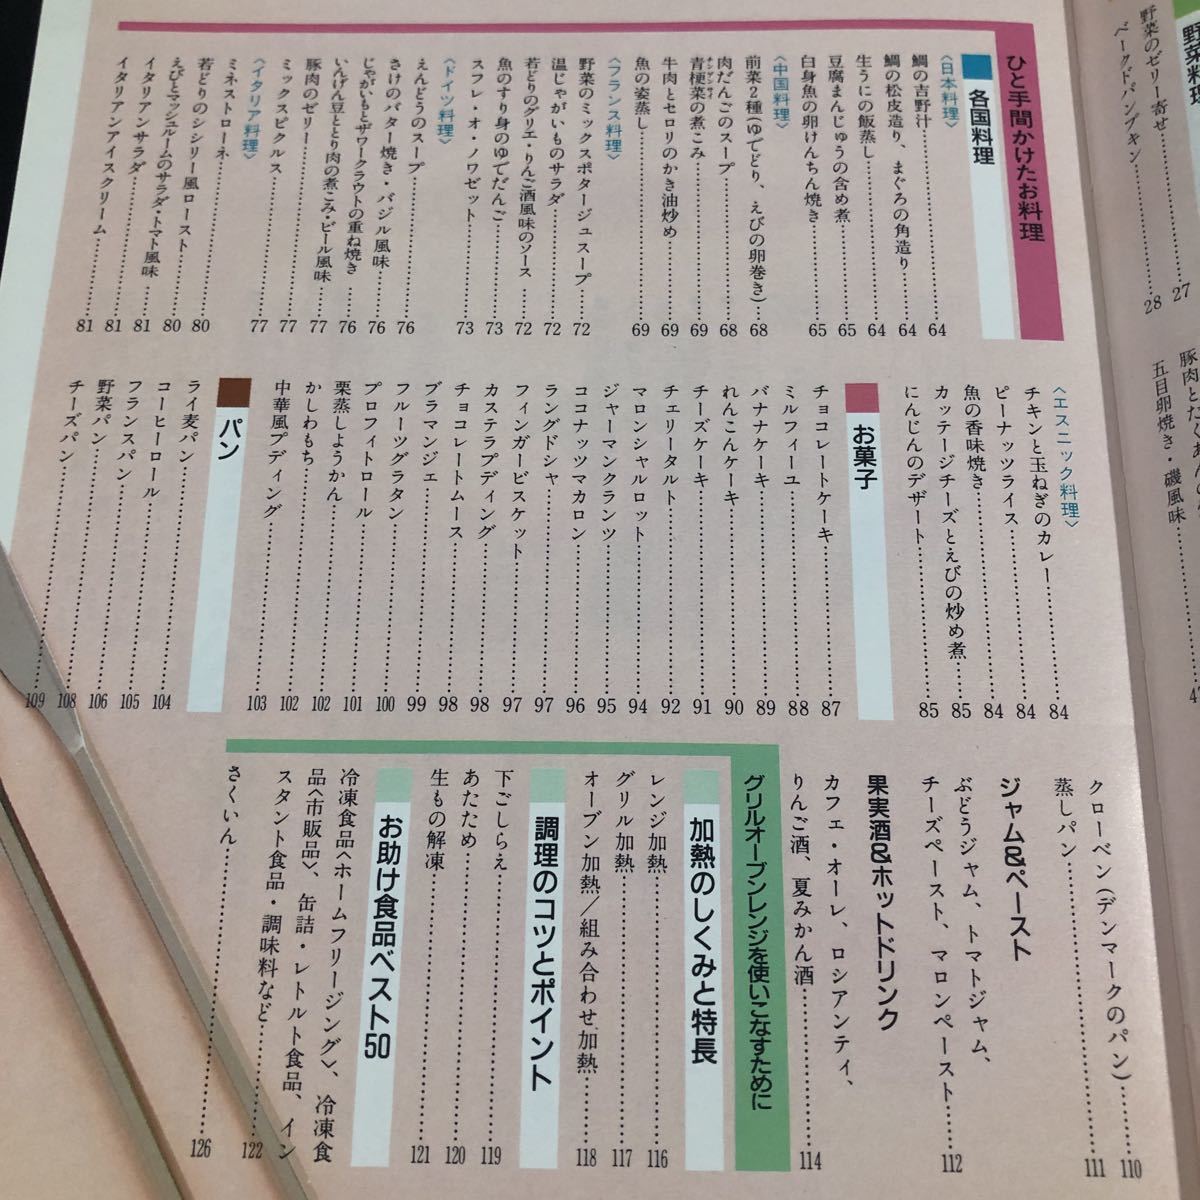 野菜料理
野菜のゼリー寄せ……27
ベークドパンプキン……28
五目卵焼き・磯風味……
ひと手間かけたお料理
各国料理
〈日本料理〉
鯛の吉野汁……64
鯛の松皮造り、まぐろの角造り……64
生うにの飯蒸し……64
豆腐まんじゅうの含め煮……65
白身魚の卵けんちん焼き……65
〈中国料理〉
前菜2種(ゆでどり、えびの卵巻き)……68
肉だんごのスープ……68
青梗菜の煮こみ……69
牛肉とセロリのかき油炒め……69
魚の姿蒸し……69
〈フランス料理〉
野菜のミックスポタージュスープ……72
温じゃがいものサラダ……72
若どりのグリエ・りんご酒風味のソース……72
魚のすり身のゆでだんご……73
スフレ・オ・ノワゼット……73
〈ドイツ料理〉
えんどうのスープ……76
さけのバター焼き・バジル風味……76
じゃがいもとザワークラウトの重ね焼き……76
いんげん豆ととり肉の煮こみ・ビール風味……77
豚肉のゼリー……77
ミックスピクルス……77
〈イタリア料理〉
ミネストローネ……80
若どりのシシリー風ロースト……80
えびとマッシュルームのサラダ・トマト風味……81
イタリアンサラダ……81
イタリアンアイスクリーム……81
〈エスニック料理〉
チキンと玉ねぎのカレー……84
ピーナッツライス……84
魚の香味焼き……84
カッテージチーズとえびの炒め煮……85
にんじんのデザート……85
お菓子
チョコレートケーキ……87
ミルフィーユ……88
バナナケーキ……89
れんこんケーキ……90
チーズケーキ……91
チェリータルト……92
マロンシャルロット……94
ジャーマンクランツ……95
ココナッツマカロン……96
ラングドシャ……97
フィンガービスケット……97
カステラプディング……98
チョコレートムース……98
ブラマンジェ……99
フルーツグラタン……100
プロフィトロール……101
栗蒸しようかん……102
かしわもち……102
中華風プディング……103
パン
ライ麦パン……104
コーヒーロール……105
フランスパン……106
野菜パン……108
チーズパン……109
クローベン(デンマークのパン)……110
蒸しパン……111
ジャム&ペースト
ぶどうジャム、トマトジャム、
チーズペースト、マロンペースト……112
果実酒&ホットドリンク
カフェ・オーレ、ロシアンティ、
りんご酒、夏みかん酒……114
グリルオーブンレンジを使いこなすために
加熱のしくみと特長
レンジ加熱……116
グリル加熱……117
オーブン加熱/組み合わせ加熱……118
調理のコツとポイント
下ごしらえ……119
あたため……120
生もの解凍……121
お助け食品ベスト50
冷凍食品〈ホームフリージング〉、冷凍食
品〈市販品〉、缶詰・レトルト食品、イン
スタント食品・調味料など……122
さくいん……126